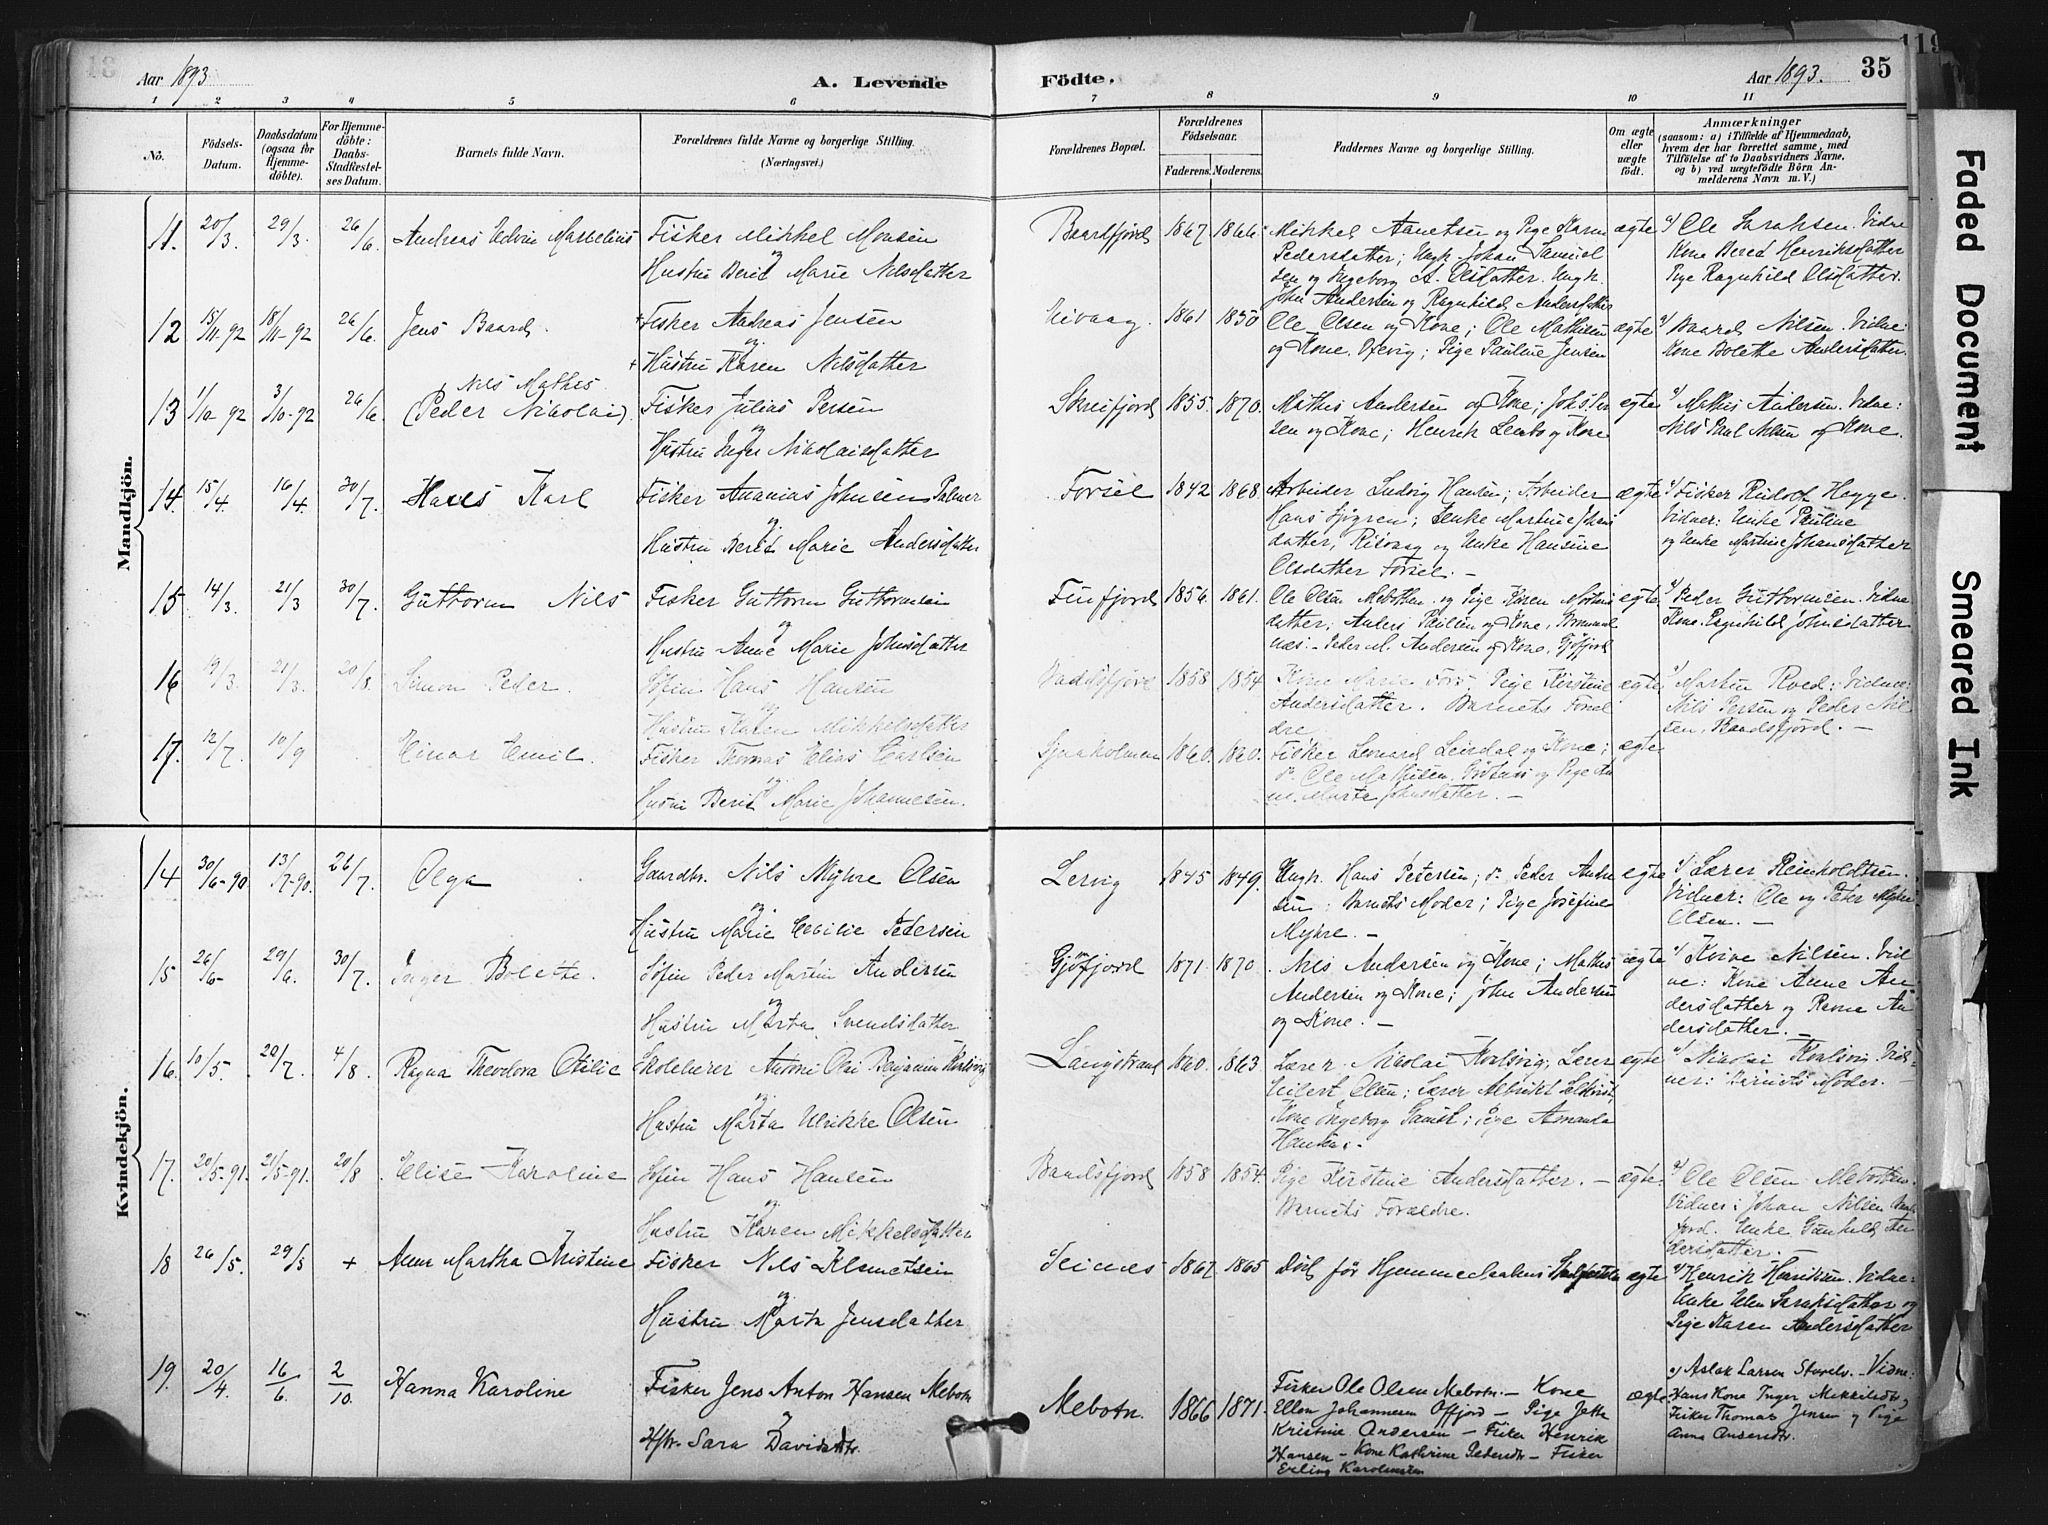 18
Aar 1893
A. Levende
Födte.
Aar 1893.
35
119
1 2 3 4 5 6 7 8 9 10 11
No.
Födsels-Datum.
Daabsdatum (ogsaa för Hjemme-döbte).
For Hjemme-döbte: Daabs-Stadfestel-ses Datum.
Barnets fulde Navn.
Forældrenes fulde Navne og borgerlige Stilling.
(Næringsvei.)
Forældrenes Bopæl.
Forældrenes Födselsaar.
Faderens. Moderens.
Faddernes Navne og borgerlige Stilling.
Om ægte eller uægte födt.
Anmærkninger
(saasom: a) i Tilfælde af Hjemmedaab,
hvem der har forrettet samme, med
Tilföielse af to Daabsvidners Navne,
og b) ved uægtefödte Börn An-
melderens Navn m. V.)
Mandkjön.
11. 20/3. 29/3. 26/6. Andreas Edvin Marselius
Fisker Mikkel Monsen
og
Hustru Berit Marie Nilsdatter
Baardfjord 1867 1866.
Mikkel Aanetsen og Pige Karen
Pedersdatter; Ungk. Johan Samuel
sen og Ingeborg A. Olsdatter. Ungk.
John Andersen og Ragnhild Andersdatter
ægte
a) Ole Sarahsen. Vidne
Kone Bered Henriksdatter
Pige Ragnhild Olsdatter.
12 15/11-92 18/11-92 26/6. Jens Baard.
+Fisker Andreas Jensen
og
+ Hustru Karen Nilsdatter
1861 1850
Ole Olsen og Kone; Ole Mathisen
og Kone. ; Pige Pauline Jensen
ægte
a) Baard Nilsen. Vidne:
Kone Bolette Andersdatter.
13 1/10-92 3/10-92 26/6
Nils Mathis
(Peder Nikolai)
Fisker Julius Persen
og
Hustru Inger Nikolaisdatter
Skreifjord 1855. 1870.
Mathis Andersen og Kone; Johs. Per
sen og Kone; Henrik og Kone
ægte
a) Mathis Andersen. Vidne:
Nils Paul Nilsen og Kone.
14. 15/4. 16/4. 30/7. Hans Karl
Fisker Ananias Johnsen Palmer
og
Hustru Berit Marie Andersdatter
Forsöl 1842 1868.
Arbeider Ludvig Hansen; Arbeider
Hans Sjögren; Enke Martine Johans
datter, og Enke Hansine
Olsdatter Forsöl. -
ægte
a) Fisker Rudolf Hegge.
Vidner: Enke Pauline
og Enke Martine Johansdatter
15 14/3. 21/3 30/7. Guttorm Nils
Fisker Guttorm Guttormsen
og
Hustru Anne Marie Johnsdatter
Finfjord 1856. 1861.
Ole Olsen Mebotten. og Pige Karen Mortens
datter; Anders Poulsen og Kone,
næs. - Peder M. Andersen og Kone, Gjöfjord
ægte
a) Peder Guttormsen. Vidne
Kone Ragnhild Johnsdatter
16 19/3. 21/3. 20/8. Simon Peder.
Söfin Hans Hansen
og
Hustru Karen Mikkelsdatter
1858 1854
Kone Marie Pige Kirstine
Andersdatter. Barnets Foræl
dre
ægte
a) Martin Roed: Vidne:
Nils Persen og Peder Nil
sen, Baadsfjord. -
17. 12/7. 10/9 Einar Emil.
Fisker Thomas Elias Carlsen
og
Hustru Berit Marie Johannesen.
Sjaaholmen 1860. 1860.
Fisker Leonard Leirdal og Kone;
do. Ole Mathisen, og Pige An
ne Marta Johnsdatter. -
ægte
Kvindekjön.
14 30/6-90 13/7-90. 26/7. Olga
Gaardbr. Nils Myhre Olsen
og
Hustru Marie Cecilie Pedersen
Lervig 1845 1849.
Ungk. Hans Petersen; do. Peder Andre
sen; Barnets Moder; Pige Josefine
Myhre. -
ægte
a) Lærer Reinholdtsen.
Vidner: Ole og Peter Myhre
Olsen. -
15 26/6- 29/6. 30/7. Inger Bolette.
Söfin Peder Martin Andersen
og
Hustru Marta Svendsdatter
Gjöfjord 1871. 1870.
Nils Andersen og Kone; Mathis
Andersen og Kone; John Andersen
og Kone. -
ægte
a) Kvive Nilsen. Vid
ne: Kone Anne An
dersdatter og Ravna An
dersdatter. -
16. 10/5. 20/7. 4/8. Ragna Theodora Otilie
Skolelærer Antoni Olai Benjamin Kvalsvig
og
Hustru Marta Ulrikke Olsen
Langstrand 1860. 1863.
Lærer Nikolai Kvalsvig; Lærer
Eilert Olsen; Lærer Albrikt
Kone Ingeborg ; Pige Amanda
Hansen. -
ægte
a) Nikolai Kvalsvig. Vid-
ner: Barnets Moder. -
17. 20/5-91. 21/5-91. 20/8 Elise Karoline
Söfin Hans Hansen
og
Hustru Karen Mikkelsdatter
Baadsfjord 1858 1854.
Pige Kirstine Andersdatter. -
Barnets Forældre.
ægte.
a) Ole Olsen Mebotten.
Vidner: Johan Nilsen
fjord. Enke Gunhild An
dersdatter. -
18 26/5. 29/5 + Anne Martha Kristine
Fisker Nils Klemetsen
og
Hustru Marta Jensdatter
Seines 1867. 1865
Död för Hjemmedaabens Stadfestelse
ægte
a) Henrik Henriksen. Vidne:
Enke Elen Sarahsdatter og
Pige Karen Andersdatter
19. 20/4. 16/6 2/10. Hanna Karoline
Fisker Jens Anton Hansen Mebotn
og
Hstr. Sara Davidsdtr.
Mebotn. 1866 1871.
Fisker Ole Olsen Mebotn. - Kone
Ellen Johannesen Offjord - Pige Jette
Kristine Andersen - Fisker Henrik
Hansen - Kone Kathrine Pedersdtr - Fisker
Erling Karolinsen
ægte
a) Aslak Larsen Storelv. - Vidne:
Hans Kone Inger Mikkelsdtr,
Fisker Thomas Jensen og Pige
Anna Andersdtr.
Faded Document
Smeared Ink